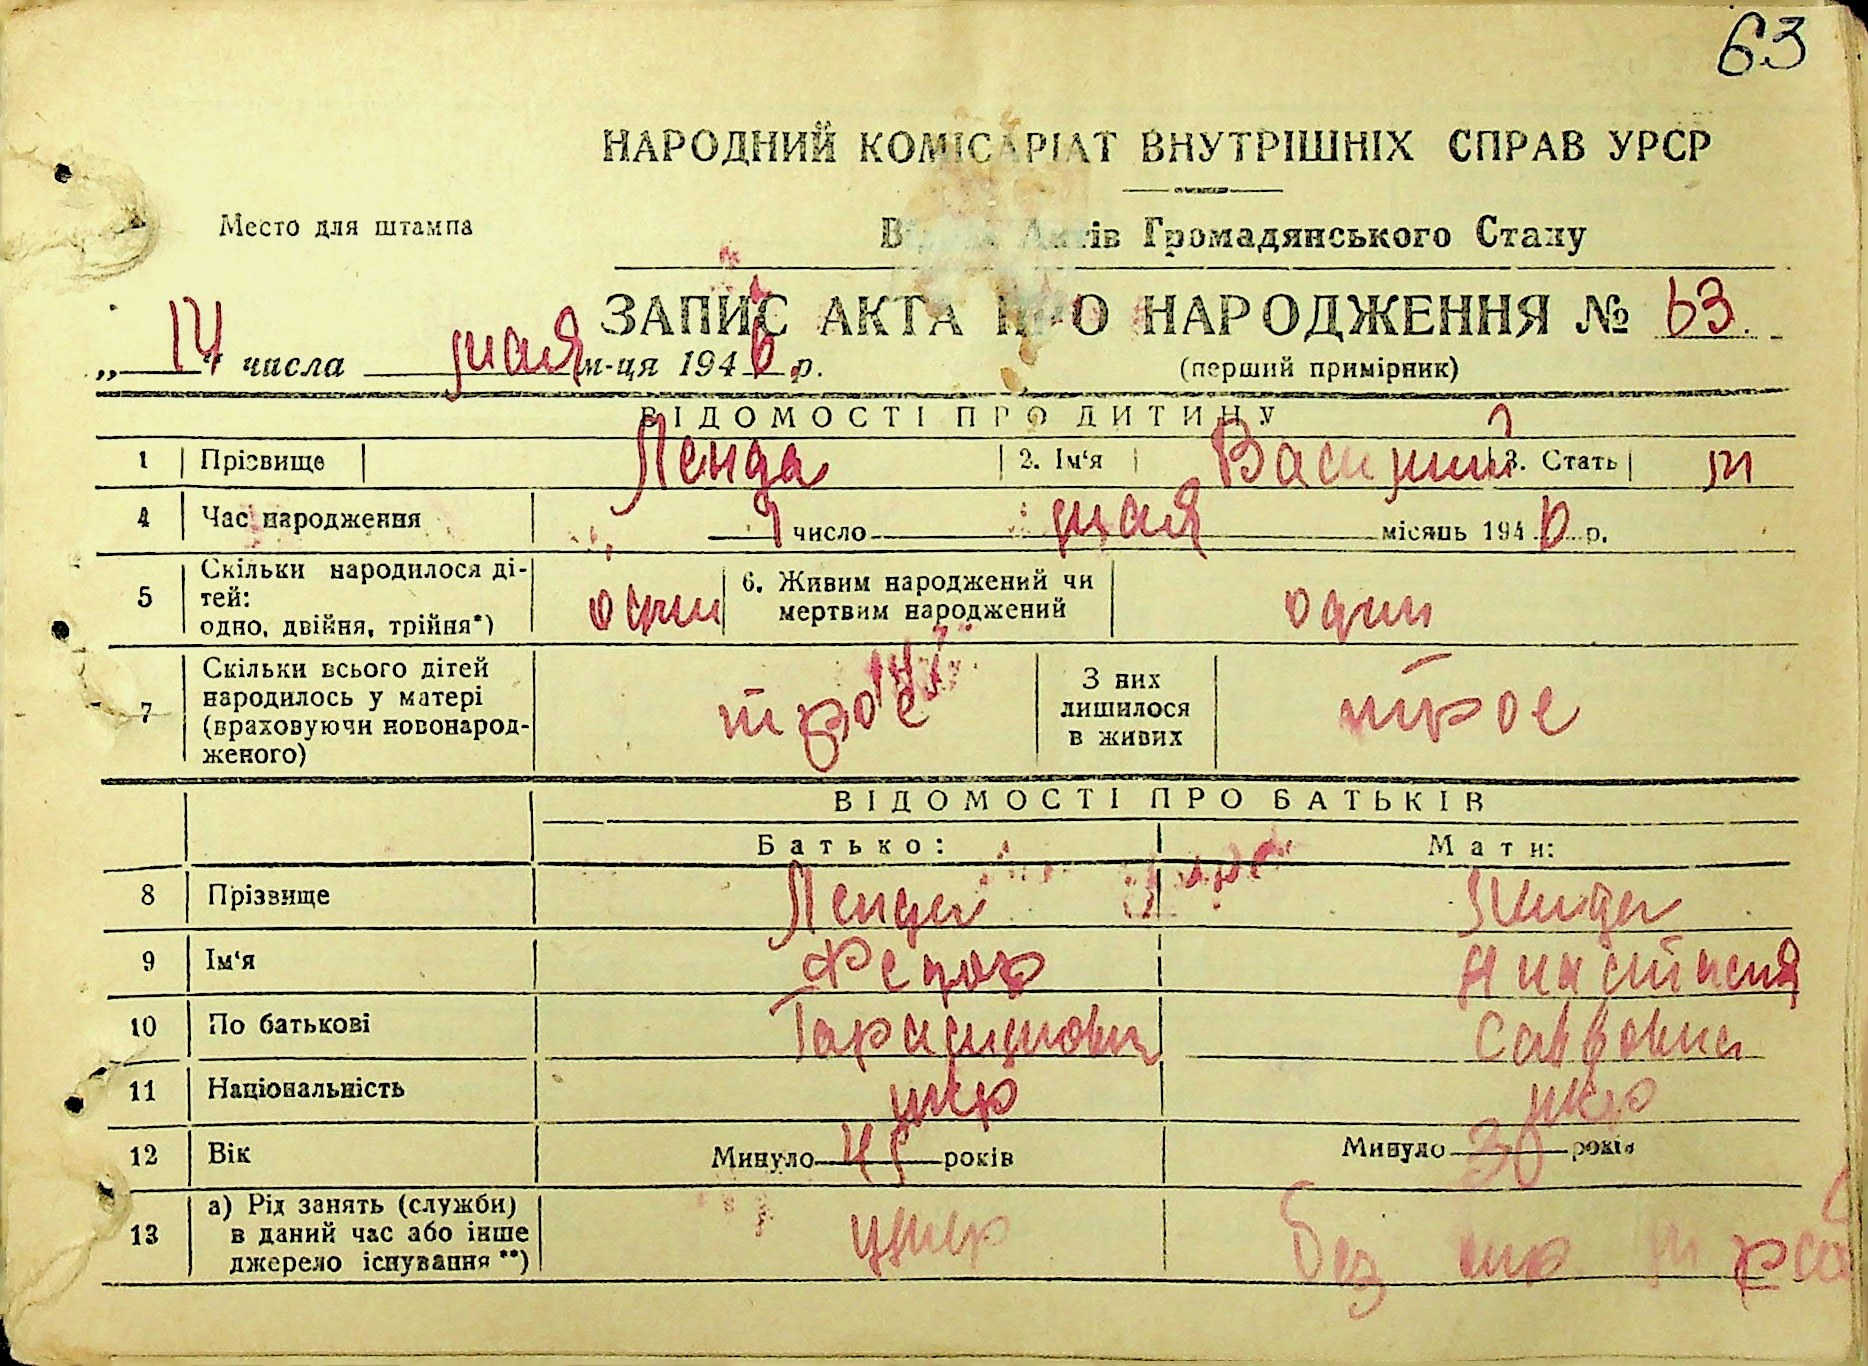 63
НАРОДНИЙ КОМІСАРІАТ ВНУТРІШНІХ СПРАВ УРСР
Место для штампа
Відділ Актів Громадянського Стану
ЗАПИС АКТА ПРО НАРОДЖЕННЯ № 63
„ 14 " числа мая м-ця 1946 р.
(перший примірник)
ВІДОМОСТІ ПРО ДИТИНУ
1 Прізвище Ленда 2. Ім‘я Василий 3. Стать м
4 Час народження 1 число мая місяць 194 р.
5 Скільки народилося ді-
тей:
одно, двійня, трійня*) один 6. Живим народжений чи
мертвим народжений один
7 Скільки всього дітей
народилось у матері
(враховуючи новонарод-
женого) трое З них
лишилося
в живих трое
ВІДОМОСТІ ПРО БАТЬКІВ
Батько: Мати:
8 Прізвище Ленда Ленда
9 Ім‘я Федор Анастасия
10 По батькові Савовна
11 Національність укр укр
12 Вік Минуло 45 років Минуло років
13 а) Рід занять (служби)
в даний час або інше
джерело існування **) без